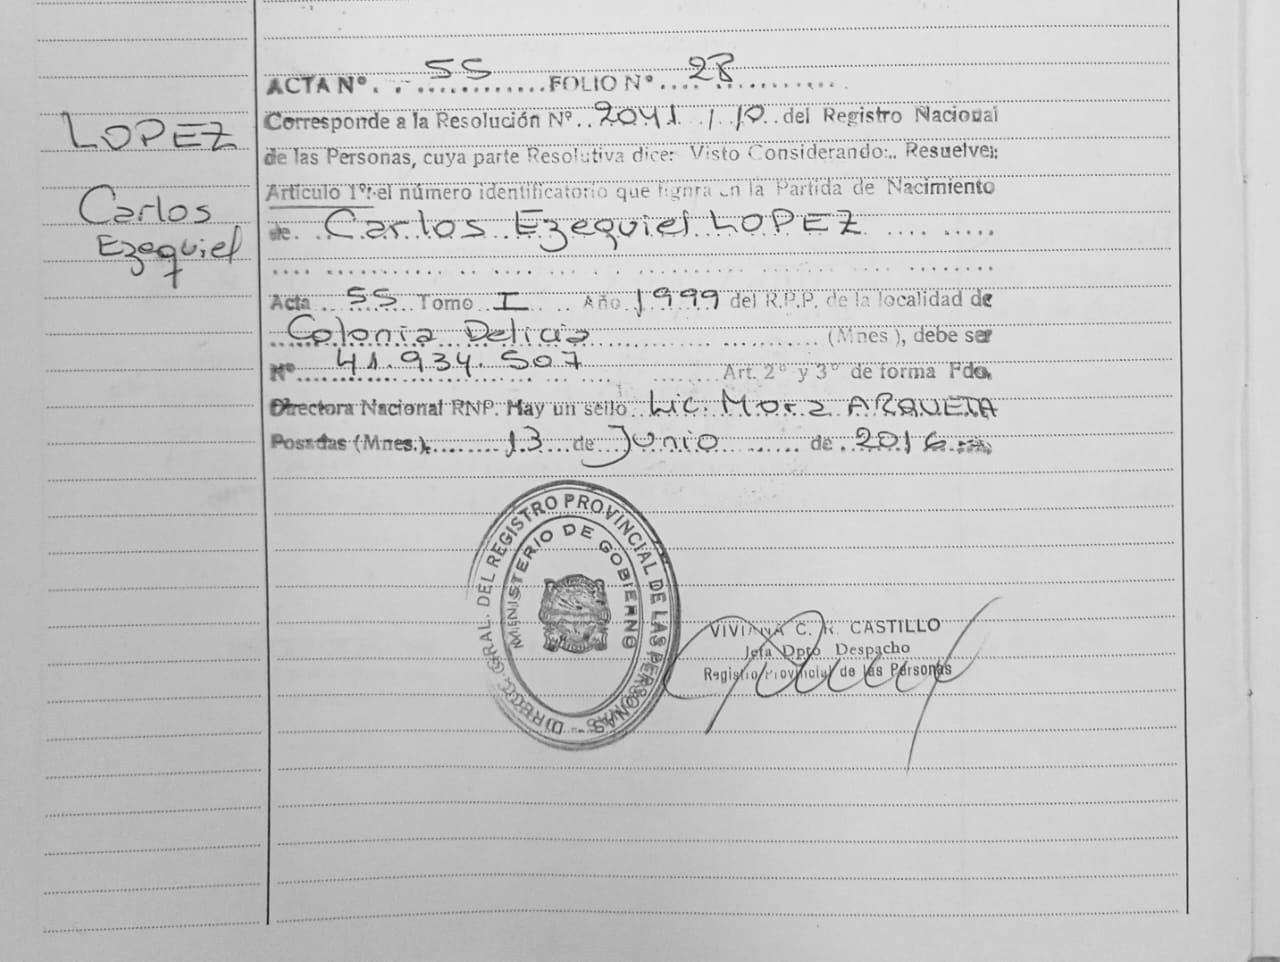 LOPEZ
Carlos
Ezequiel
ACTA Nº. . 55 FOLIO Nº 28
Corresponde a la Resolución Nº 2041 / 10 del Registro Nacional
de las Personas, cuya parte Resolutiva dice: Visto Considerando:.. Resuelve:
Artículo 1º: el número identificatorio que figura en la Partida de Nacimiento
de. Carlos Ezequiel LOPEZ
Acta 55 Tomo I Año 1999 del R.P.P. de la localidad de
Colonia Delicia (Mnes), debe ser
Nº 41.934.507 Art. 2º y 3º de forma Fdo.
Directora Nacional RNP. Hay un sello Lic. Mora ARQUETA
Posadas (Mnes.), 13 de Junio de 2016
DIRECC. GRAL. DEL REGISTRO PROVINCIAL DE LAS PERSONAS -
MINISTERIO DE GOBIERNO
VIVIANA C. R. CASTILLO
Jefa Dpto Despacho
Registro Provincial de las Personas